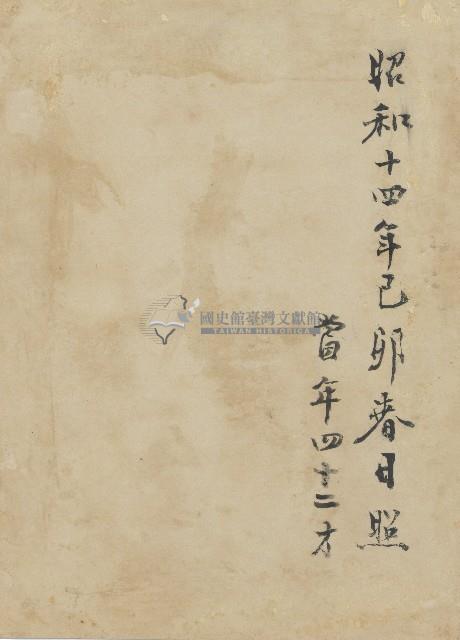 昭和十四年己卯春日照
當年四十二才
國史館臺灣文獻館
TAIWAN HISTORICA